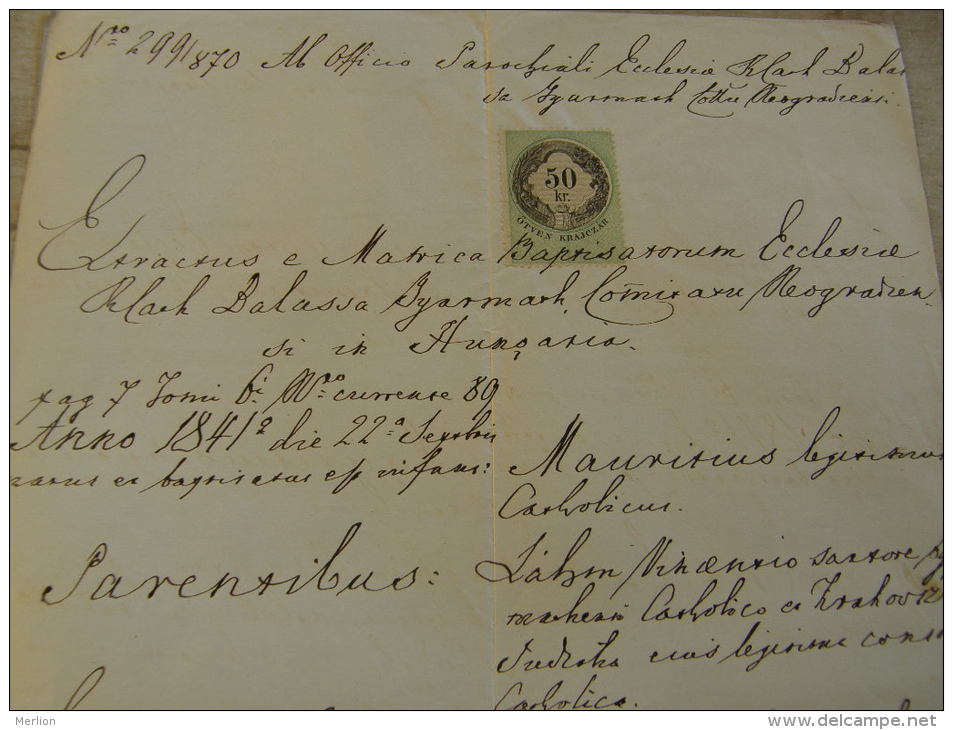 Nro 299/870 Ab Officio Parochiali Ecclesiæ RCath Balas
sa Gyarmath Cottu Neogradiensi.
50
kr.
ÖTVEN KRAJCZÁR
Extractus e Matrica Baptisatorum Ecclesiæ
RCath Balassa Gyarmath, Comitatu Neogradien
si in Hungaria.
pag 7 Tomi 6i Nro currente 89
Anno 1841o die 22a Septbris
natus et baptisatus est infans:
Mauritius legitimus
Catholicus.
Parentibus:
Lábm Vincentio sartore
Catholico et
eius legitima
Catholica.
Merlion
www.delcampe.net